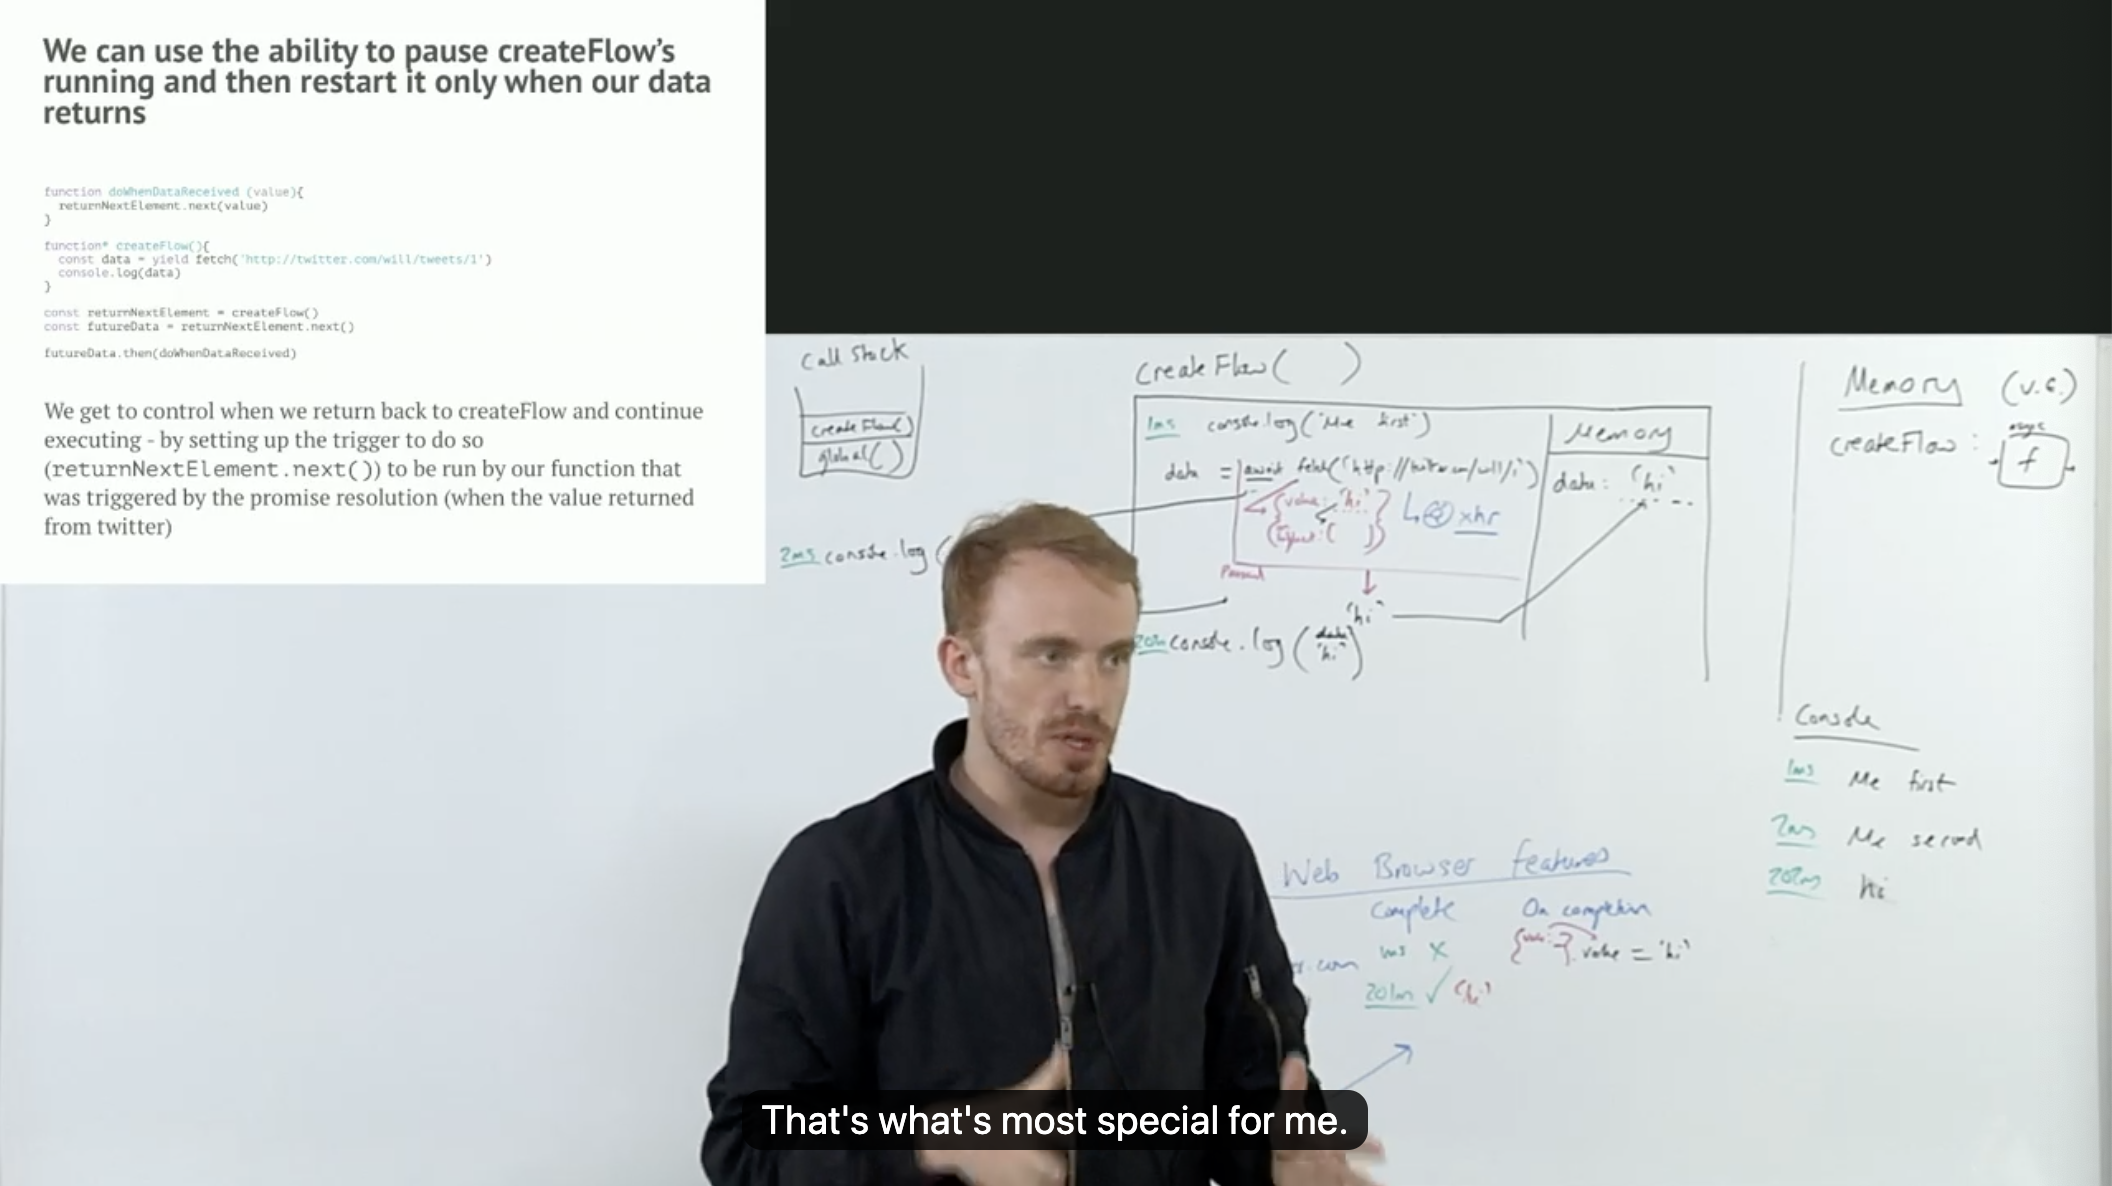 We can use the ability to pause createFlow’s
running and then restart it only when our data
returns
function doWhenDataReceived (value){
returnNextElement.next(value)
}
function* createFlow(){
const data = yield fetch('http://twitter.com/will/tweets/1')
console.log(data)
}
const returnNextElement = createFlow()
const futureData = returnNextElement.next()
futureData.then(doWhenDataReceived)
We get to control when we return back to createFlow and continue
executing - by setting up the trigger to do so
(returnNextElement.next()) to be run by our function that
was triggered by the promise resolution (when the value returned
from twitter)
Call Stack
createFlow()
global()
createFlow( )
1ms console.log('Me first')
data = await fetch('http://twitter.com/will/1')
{value: 'hi'
↳ @ xhr
Paused
'hi'
2ms console.log(
console.log(data
'hi')
Memory
data: 'hi'
Memory (v.e.)
createFlow : async
f
Console
1ms Me first
2ms Me second
202ms hi
Web Browser features
Complete
On completion
ms X
201ms ✓ 'hi'
value = 'hi'
That's what's most special for me.